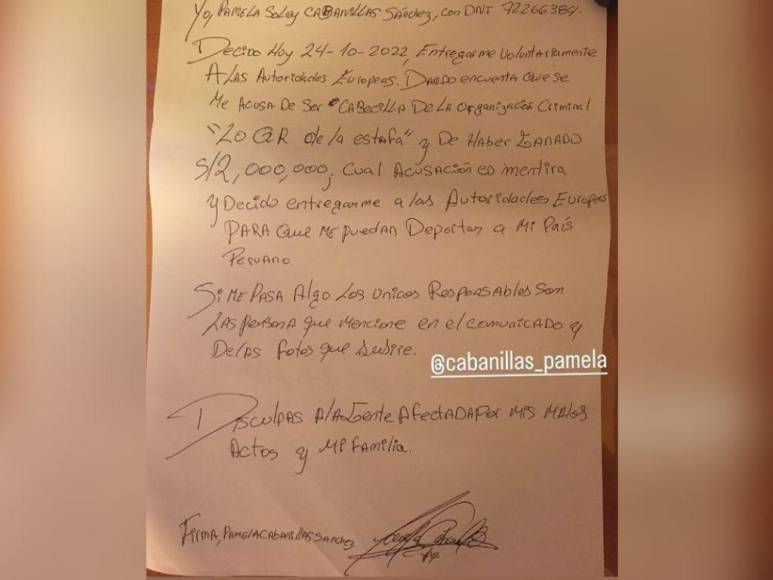 Yo, PAMELA Soley CABANILLAS Sánchez, con DNI 72266384.
Decido Hoy 24-10-2022, Entregarme Voluntariamente
A las Autoridades Europeas. Dando encuenta que se
Me Acusa De Ser "CABecilla De La organización Criminal
"Lo QR de la estafa" y De Haber GANADO
S/2,000,000, cual Acusación es mentira
y Decido entregarme a las Autoridades Europeas
PARA Que me puedan Deportar a Mi País
Peruano
Si me PASA Algo Los Unicos Responsables Son
Las persona que mencione en el comunicado y
De las fotos que subire.
@cabanillas_pamela
Disculpas A la Gente AfectADA por mis malos
Actos y Mi familia.
Firma, PAMELA CABANILLAS SANchez